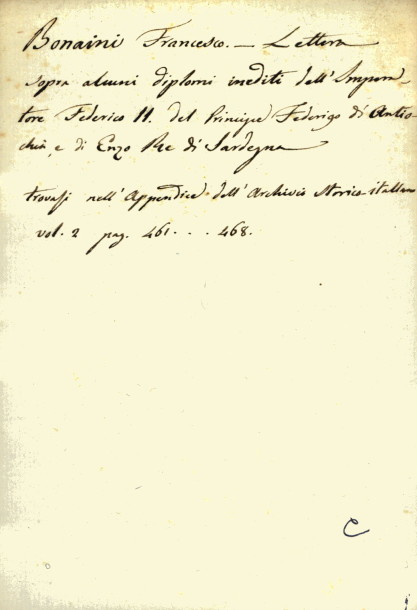 Bonaini Francesco. — Lettera
sopra alcuni diplomi inediti dell'Impera-
tore Federico II. del Principe Federigo di Antio-
chia, e di Enzo Re di Sardegna
trovasi nell'Appendice dell'Archivio Storico italiano
vol. 2 pag. 461 . . . 468.
C